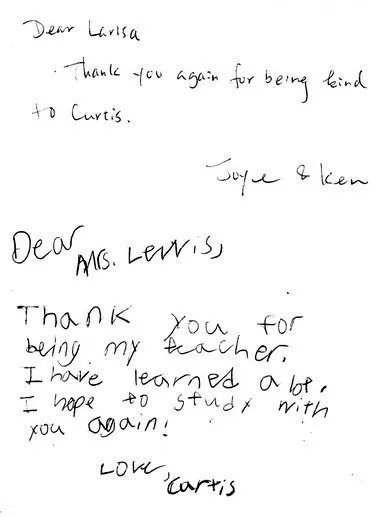 Dear Larisa
Thank you again for being kind
to Curtis.
Joyce & Ken
Dear
Mrs. Lewis,
Thank you for
being my teacher.
I have learned a lot.
I hope to study with
you again!
Love,
Curtis